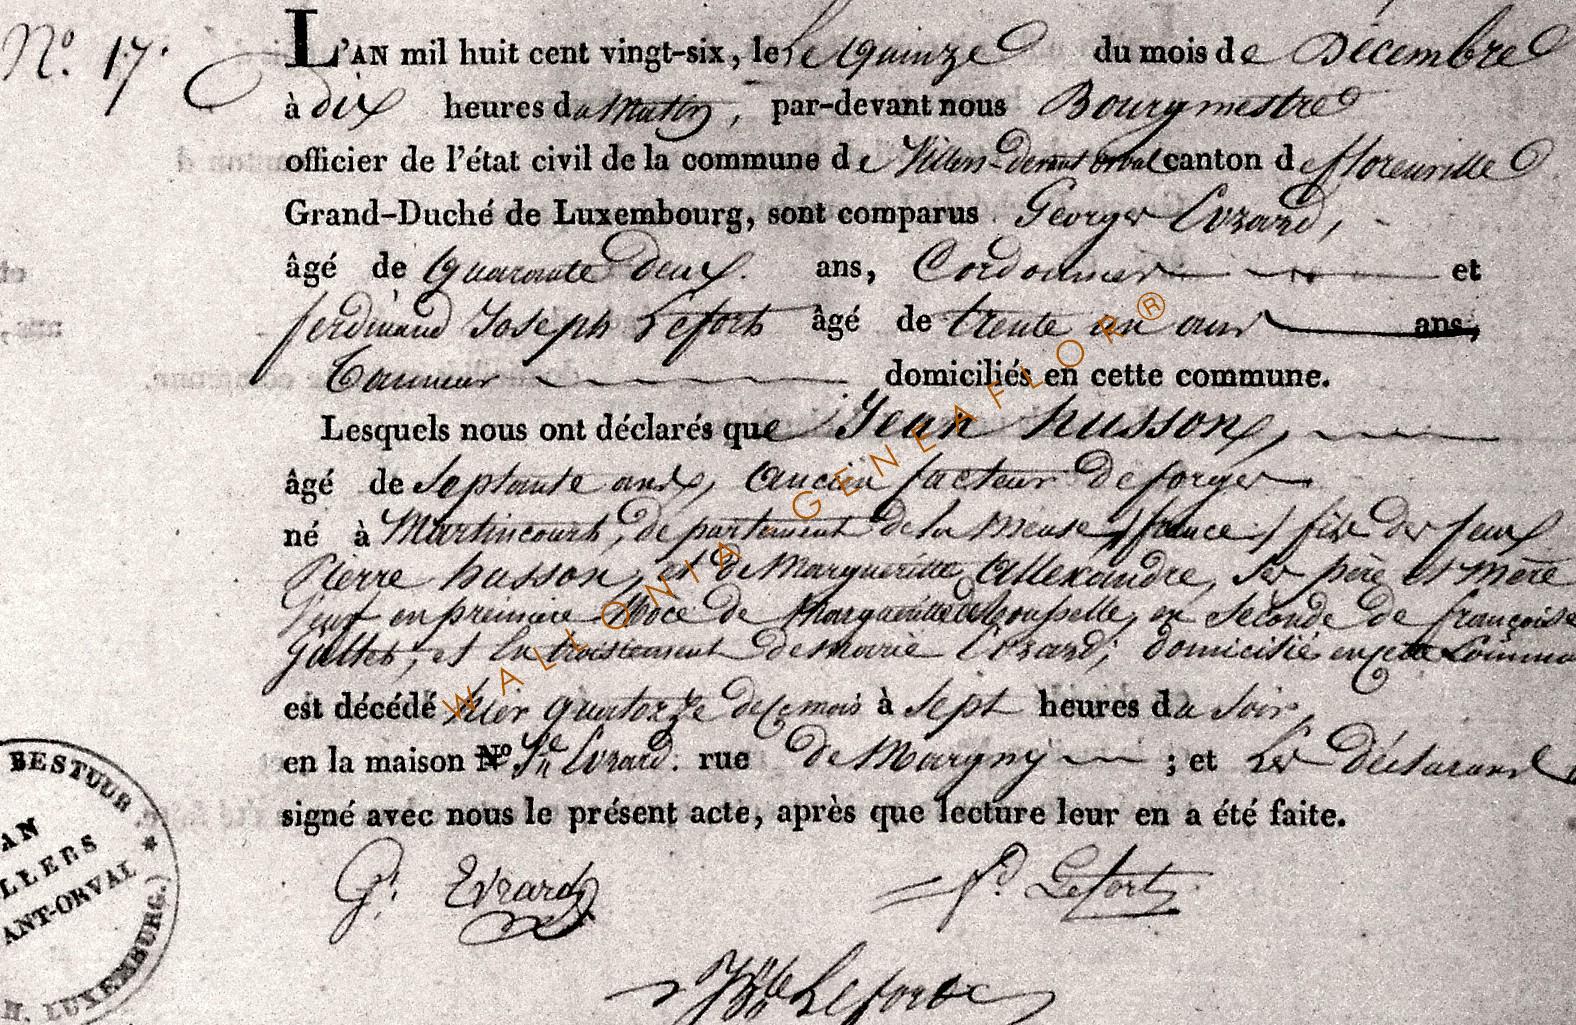 N.º 17.
L'AN mil huit cent vingt-six, le Le quinze du mois de Décembre
à dix heures du Matin, par-devant nous Bourgmestre
officier de l'état civil de la commune de Villers-devant orval canton de florenville
Grand-Duché de Luxembourg, sont comparus Georges Evrard,
âgé de quarante deux ans, Cordonnier et
ferdinand Joseph Lefort âgé de trente un ans ans,
Tanneur domiciliés en cette commune.
Lesquels nous ont déclarés que Jean husson,
âgé de septante ans, ancien facteur de forges
né à Martincourt, departement de la Meuse (france) fils des feux
Pierre husson, et de Margueritte Allexandre, ses père et mère
veuf en premiere Noce de Margueritte, en seconde de françoise
et en troisiement de marie Evrard; domicilié en cette Commu
est décédé hier quatorze de ce mois à sept heures du soir,
en la maison Nº Evrard. rue de Margny ; et Les déclarans
signé avec nous le présent acte, après que lecture leur en a été faite.
G. Evrard
f.d Lefort
Lefort
BESTUUR
AN
LLERS
ANT-ORVAL
H. LUXEMBURG.)
WALLONIA GENEAFLOR®